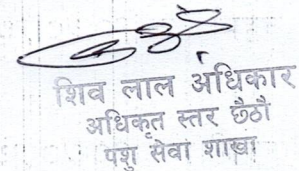 शिव लाल अधिकार
अधिकृत स्तर छैठौ
पशु सेवा शाखा